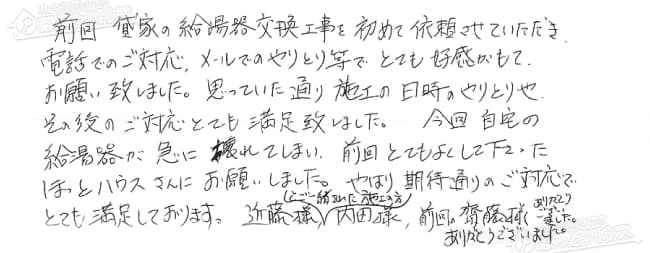 前回 貸家の給湯器交換工事を初めて依頼させていただき、
電話でのご対応、メールでのやりとり等でとても好感がもて、
お願い致しました。思っていた通り施工の日時のやりとりや、
その後のご対応とても満足致しました。 今回自宅の
給湯器が急に壊れてしまい、前回とてもよくして下さった
ほっとハウスさんにお願いしました。やはり期待通りのご対応で
とても満足しております。 近藤様、内田様、前回の齋藤様
(とご一緒された施工の方)
ありがとうございました。
ありがとうございました。